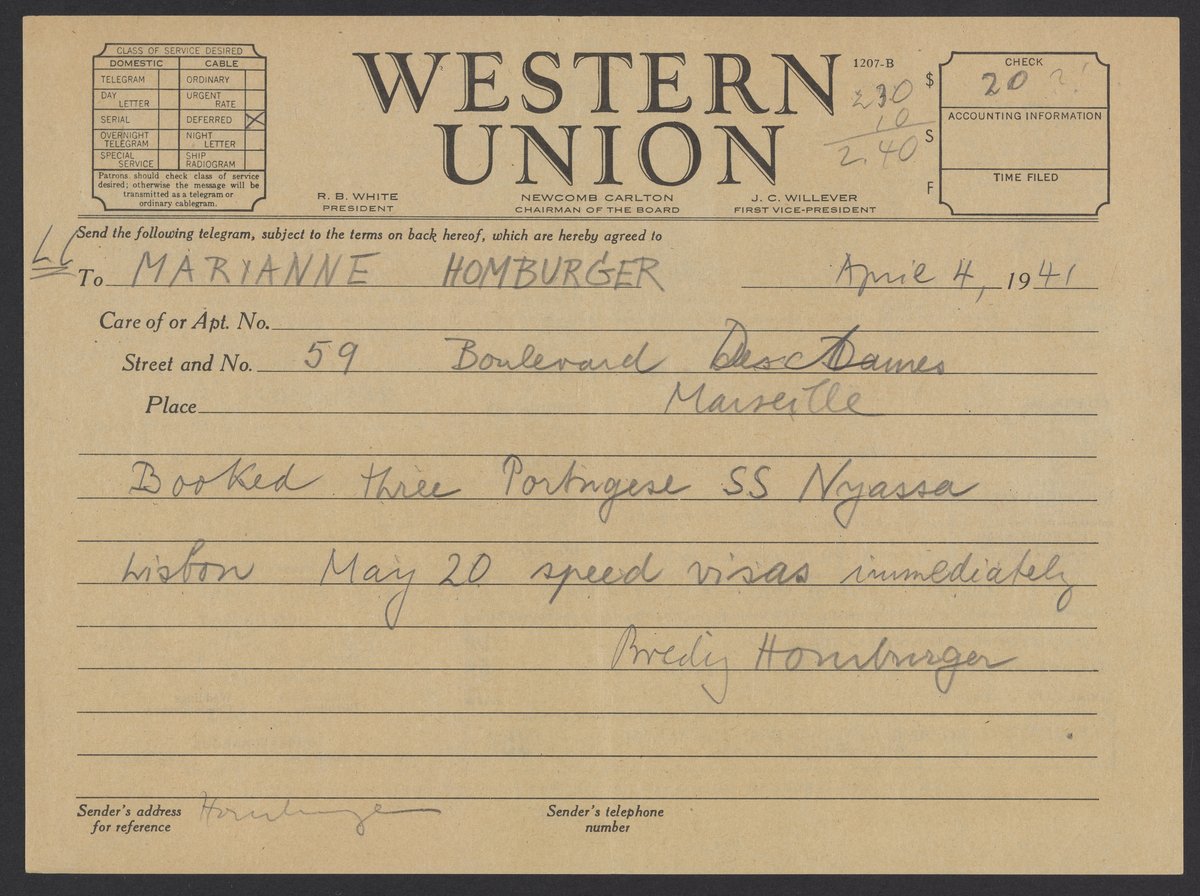 CLASS OF SERVICE DESIRED
DOMESTIC CABLE
TELEGRAM ORDINARY
DAY LETTER URGENT RATE
SERIAL DEFERRED X
OVERNIGHT TELEGRAM NIGHT LETTER
SPECIAL SERVICE SHIP RADIOGRAM
Patrons should check class of service
desired; otherwise the message will be
transmitted as a telegram or
ordinary cablegram.
WESTERN
UNION
1207-B
230
10
2.40
$
S
F
CHECK
20
ACCOUNTING INFORMATION
TIME FILED
R. B. WHITE
PRESIDENT
NEWCOMB CARLTON
CHAIRMAN OF THE BOARD
J. C. WILLEVER
FIRST VICE-PRESIDENT
Send the following telegram, subject to the terms on back hereof, which are hereby agreed to
LC
To MARIANNE HOMBURGER April 4, 1941
Care of or Apt. No.
Street and No. 59 Boulevard Des Dames
Place Marseille
Booked three Portugese SS Nyassa
Lisbon May 20 speed visas immediately
Bredig Homburger
Sender's address
for reference
Homburger
Sender's telephone
number